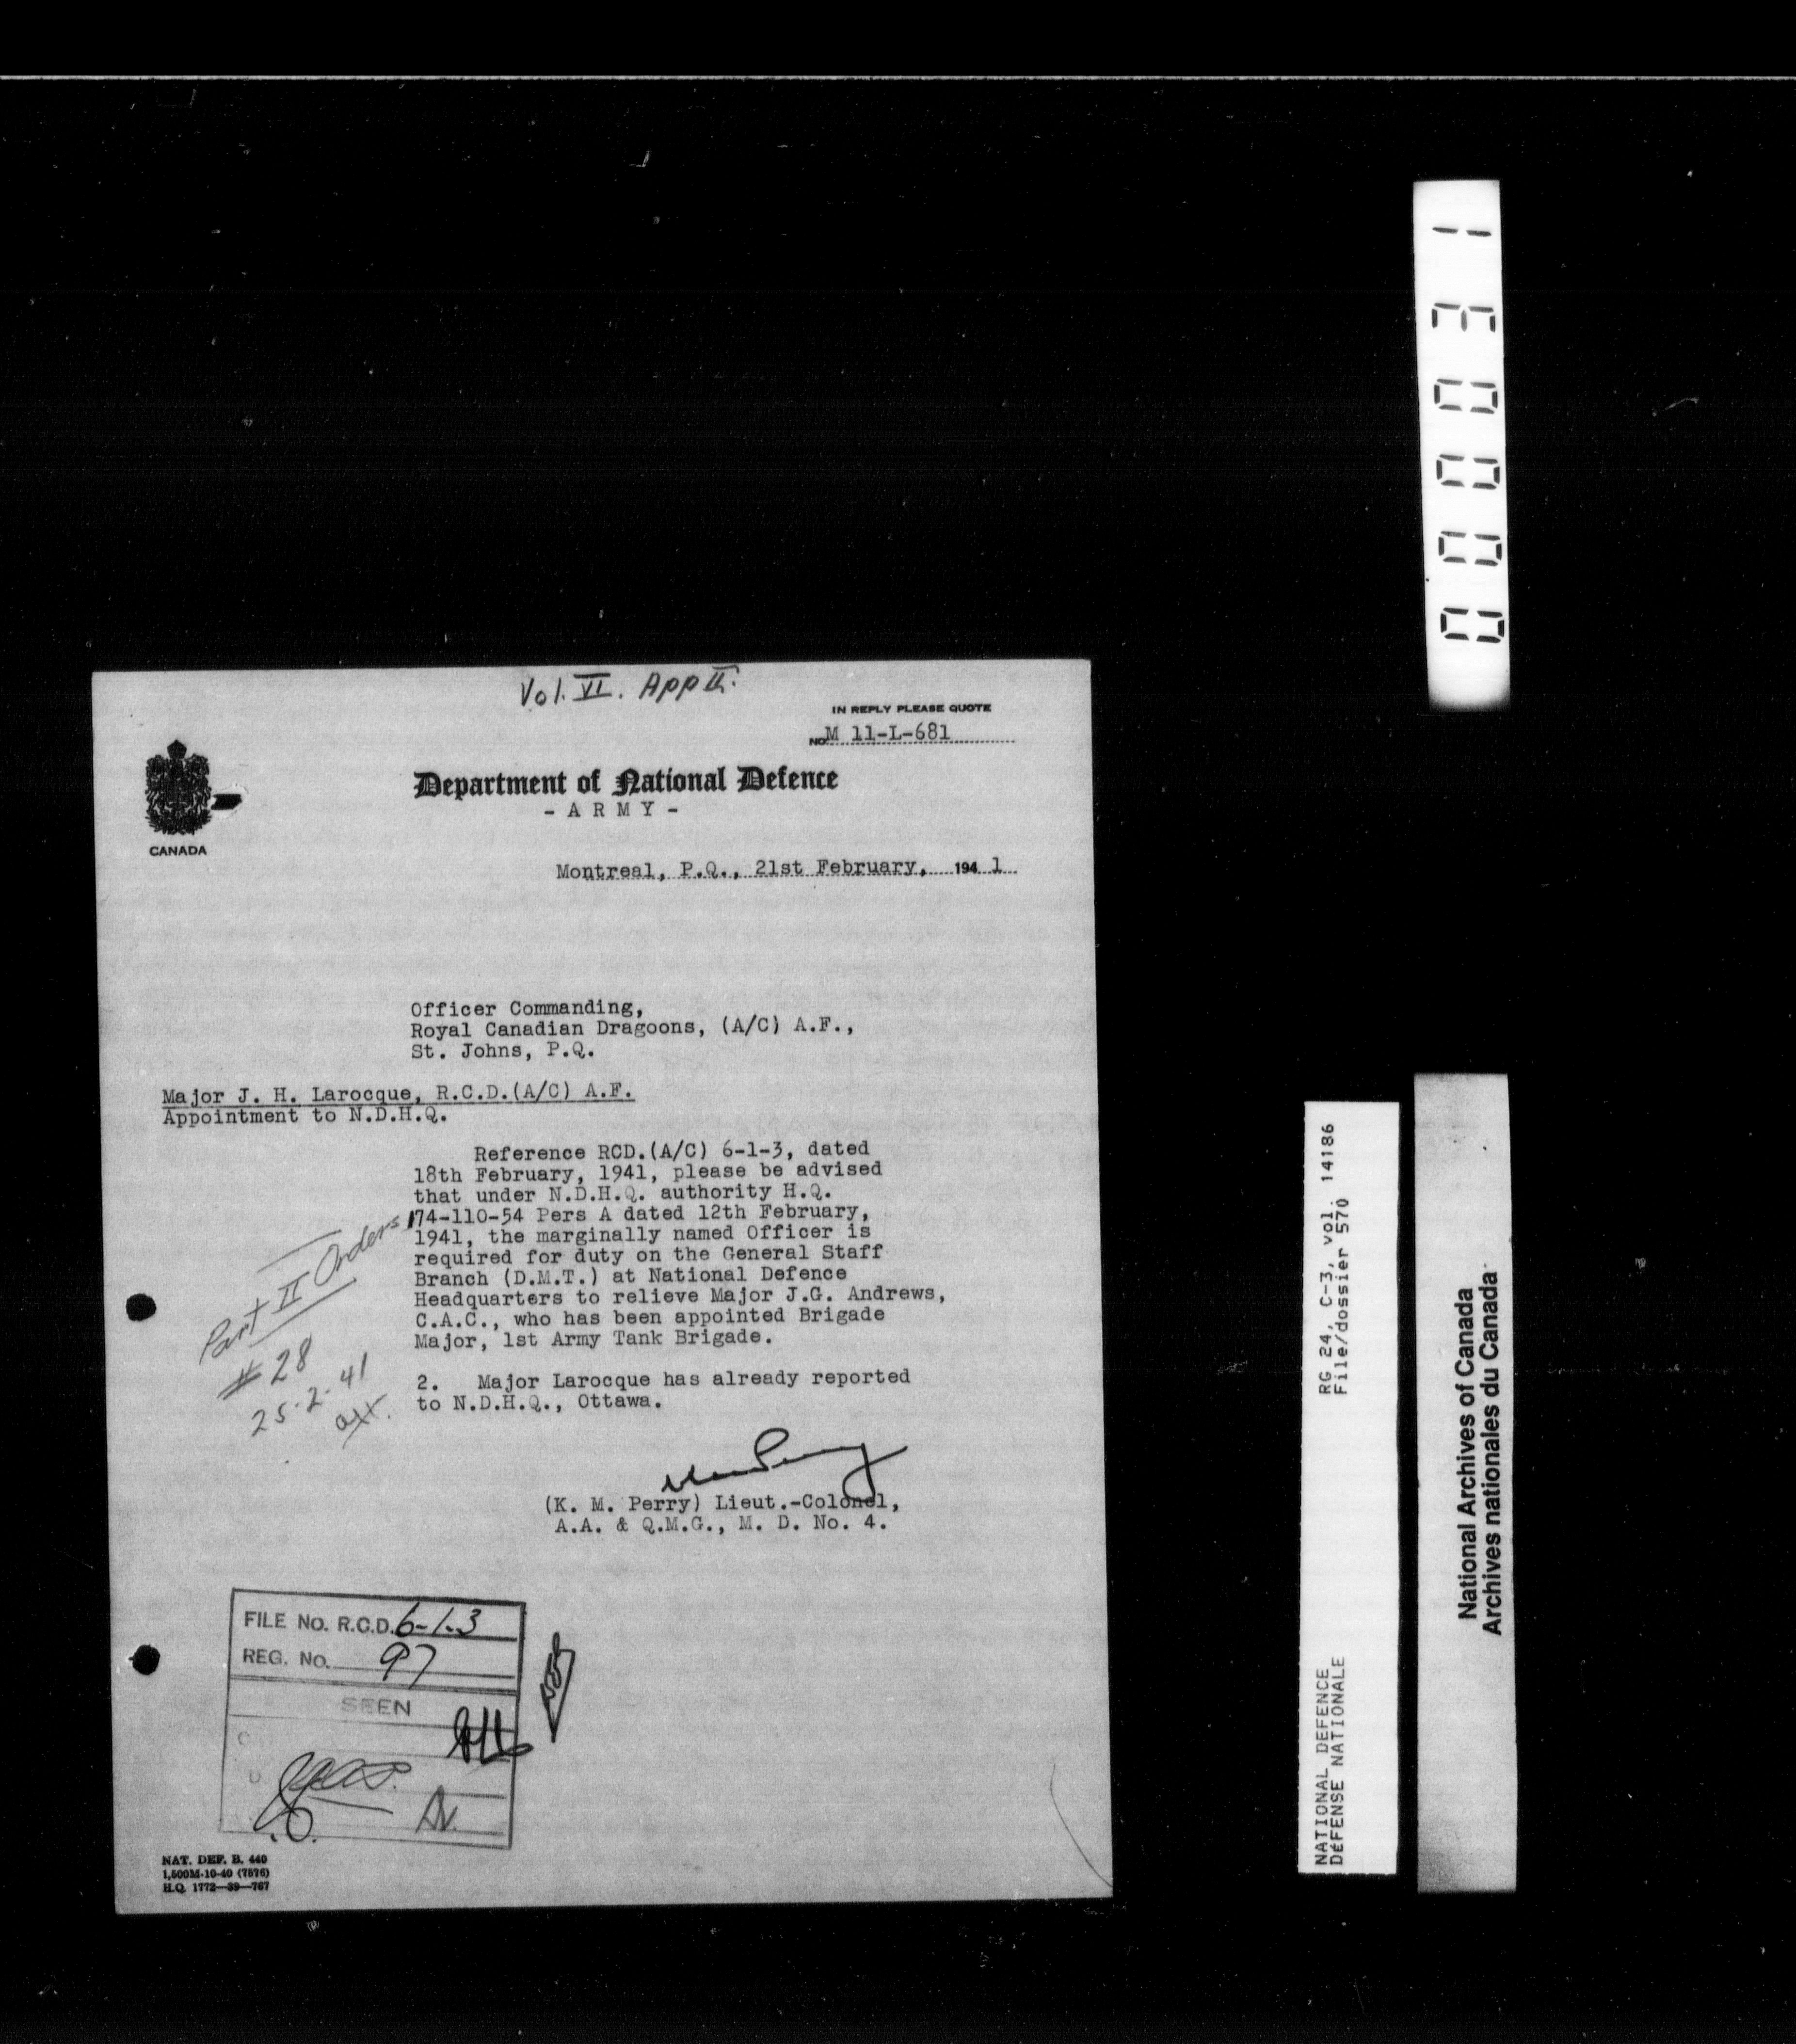 Vol. VI. App II.
IN REPLY PLEASE QUOTE
NO. M 11-L-681
Department of National Defence
- A R M Y -
CANADA
Montreal, P.Q., 21st February, 194 1
Officer Commanding,
Royal Canadian Dragoons, (A/C) A.F.,
St. Johns, P.Q.
Major J. H. Larocque, R.C.D.(A/C) A.F.
Appointment to N.D.H.Q.
Reference RCD.(A/C) 6-1-3, dated
18th February, 1941, please be advised
that under N.D.H.Q. authority H.Q.
174-110-54 Pers A dated 12th February,
1941, the marginally named Officer is
required for duty on the General Staff
Branch (D.M.T.) at National Defence
Headquarters to relieve Major J.G. Andrews,
C.A.C., who has been appointed Brigade
Major, 1st Army Tank Brigade.
2. Major Larocque has already reported
to N.D.H.Q., Ottawa.
Part II Orders
# 28
25-2-41
(K. M. Perry) Lieut.-Colonel,
A.A. & Q.M.G., M. D. No. 4.
FILE NO. R.C.D. 6-1-3
REG. NO. 97
SEEN
NAT. DEF. B. 440
1,500M-10-40 (7576)
H.Q. 1772-39-767
000031
RG 24, C-3, vol. 14186
File/dossier 570
NATIONAL DEFENCE
DÉFENSE NATIONALE
National Archives of Canada
Archives nationales du Canada